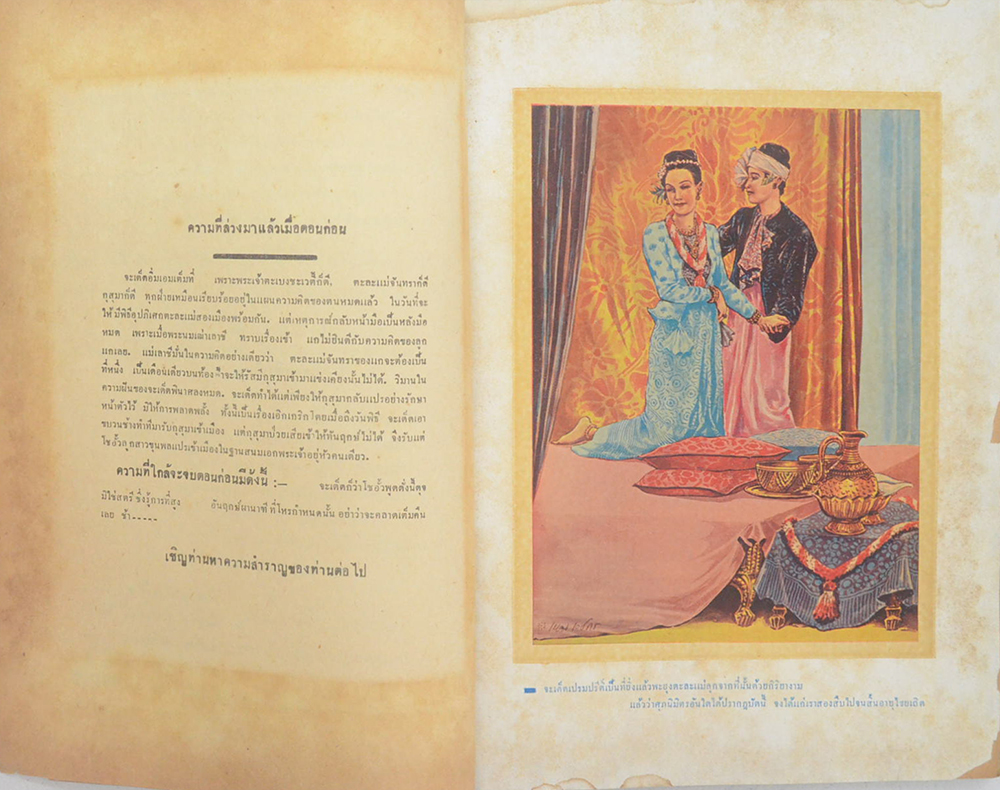 ความที่ล่วงมาแล้วเมื่อตอนก่อน
จะเด็ดอิ่มเอมเต็มที่ เพราะพระเจ้าตะเบงชะเวตี้ก็ดี ตะละแม่จันทราก็ดี
กุสุมาก็ดี ทุกฝ่ายเหมือนเรียบร้อยอยู่ในแผนความคิดของตนหมดแล้ว ในวันที่จะ
ให้มีพิธีอุปภิเศกตะละแม่สองเมืองพร้อมกัน แต่เหตุการณ์กลับหน้ามือเป็นหลังมือ
หมด เพราะเมื่อพระนมเฒ่าเลาชี ทราบเรื่องเข้า แกไม่ยินดีกับความคิดของลูก
แกเลย. แม่เลาชีมั่นในความคิดอย่างเดียวว่า ตะละแม่จันทราของแกจะต้องเป็น
ที่หนึ่ง เป็นเดือนเดียวบนท้องฟ้าจะให้รัสมีกุสุมาเข้ามาแข่งเคียงนั้นไม่ได้. วิมานใน
ความฝันของจะเด็ดพินาศลงหมด. จะเด็ดทำได้แต่เพียงให้กุสุมากลับแปรอย่างรักษา
หน้าตัวไว้ มิให้การพลาดพลั้ง ทั้งนี้เป็นเรื่องเอิกเกริกโดยเมื่อถึงวันพิธี จะเด็ดเอา
ขบวนช้างทำทีมารับกุสุมาเข้าเมือง แต่กุสุมาป่วยเสียเข้าให้ทันฤกษ์ไม่ได้ จึงรับแต่
ไขอั้วกูลูกสาวขุนพลแปรเข้าเมืองในฐานสนมเอกพระเจ้าอยู่หัวคนเดียว.
ความที่ใกล้จะจบตอนก่อนมีดังนี้ :—
จะเด็ดก็ว่าไขอั้วพูดดั่งนี้ดุจ
มิใช่สตรี ซึ่งรู้การที่สูง อันฤกษ์ผานาทีที่โหรกำหนดนั้น อย่าว่าจะคลาดเต็มคืน
เลย ช้า-----
เชิญท่านหาความสำราญของท่านต่อไป
จะเด็ดเปรมปรีดิ์เป็นที่ยิ่งแล้วพะยุงตะละแม่ลุกจากที่นั้นด้วยกิริยางาม
แล้วว่าศุภนิมิตรอันใดได้ปรากฎบัดนี้ จงได้แก่เราสองสืบไปจนสิ้นอายุไขยเถิด